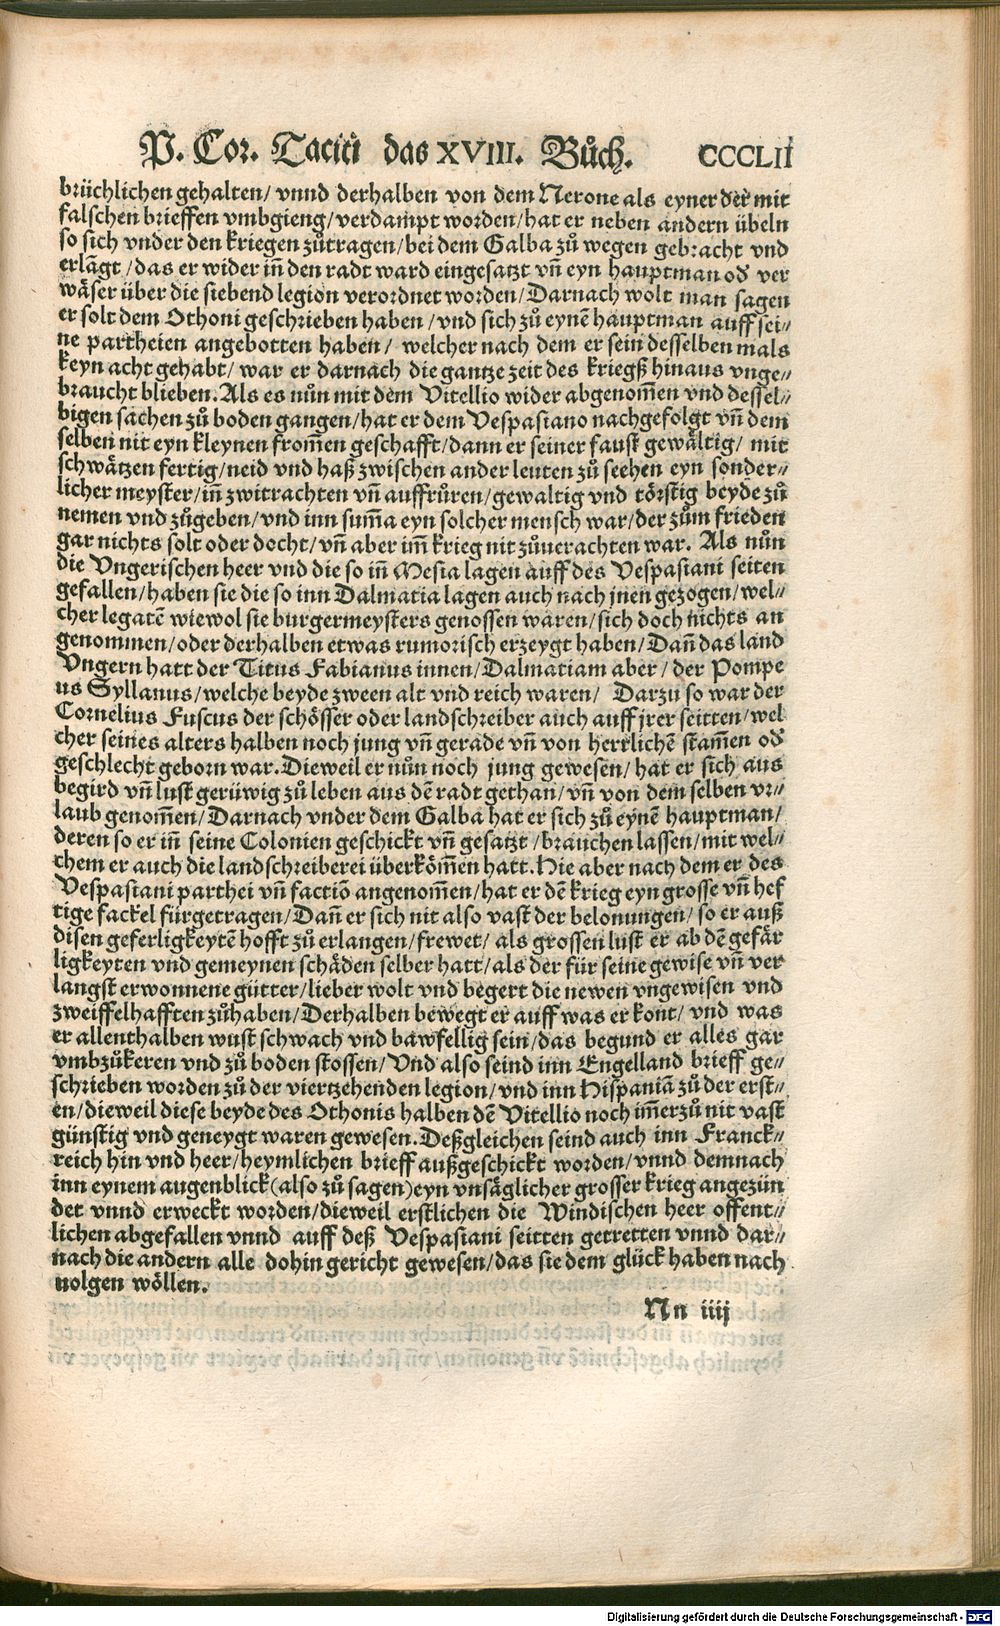 P. Cor. Taciti das XVIII. Bůch. CCCLII
brüchlichen gehalten/ vnnd derhalben von dem Nerone als eyner der mit
falschen brieffen vmbgieng/verdampt worden/hat er neben andern übeln
so sich vnder den kriegen zůtragen/bei dem Galba zů wegen gebracht vnd
erlãgt/das er wider iñ den radt ward eingesatzt vñ eyn hauptman od ver
wäser über die siebend legion verordnet worden/Darnach wolt man sagen
er solt dem Othoni geschrieben haben/vnd sich zů eynẽ hauptman auff sei⸗
ne partheien angebotten haben/ welcher nach dem er sein desselben mals
keyn acht gehabt/ war er darnach die gantze zeit des kriegß hinaus vnge⸗
braucht blieben. Als es nůn mit dem Vitellio wider abgenom̃en vnd dessel⸗
bigen sachen zů boden gangen/hat er dem Vespasiano nachgefolgt vñ dem
selben nit eyn kleynen from̃en geschafft/dann er seiner faust gewältig/ mit
schwätzen fertig/neid vnd haß zwischen ander leuten zů seehen eyn sonder⸗
licher meyster/iñ zwitrachten vñ auffrůren/gewaltig vnd törstig beyde zů
nemen vnd zůgeben/vnd inn sum̃a eyn solcher mensch war/der zům frieden
gar nichts solt oder docht/vñ aber im̃ krieg nit zůuerachten war. Als nůn
die Vngerischen heer vnd die so iñ Mesia lagen auff des Vespasiani seiten
gefallen/haben sie die so inn Dalmatia lagen auch nach jnen gezogen/wel⸗
cher legatẽ wiewol sie burgermeysters genossen waren/sich doch nichts an
genommen/oder derhalben etwas rumorisch erzeygt haben/Dañ das land
Vngern hatt der Titus Fabianus innen/Dalmatiam aber/ der Pompe
us Syllanus/welche beyde zween alt vnd reich waren/ Darzu so war der
Cornelius Fuscus der schösser oder landschreiber auch auff jrer seitten/wel
cher seines alters halben noch jung vñ gerade vñ von herrlichẽ stam̃en od
geschlecht geborn war. Dieweil er nůn noch jung gewesen/ hat er sich aus
begird vñ lust gerüwig zů leben aus dẽ radt gethan/vñ von dem selben vr⸗
laub genom̃en/Darnach vnder dem Galba hat er sich zů eynẽ hauptman/
deren so er iñ seine Colonien geschickt vñ gesatzt/brauchen lassen/mit wel⸗
chem er auch die landschreiberei überköm̃en hatt. Hie aber nach dem er des
Vespasiani parthei vñ factiõ angenom̃en/hat er dẽ krieg eyn grosse vñ hef
tige fackel fürgetragen/Dañ er sich nit also vast der belonungen/so er auß
disen geferligkeytẽ hofft zů erlangen/frewet/ als grossen lust er ab dẽ gefär
ligkeyten vnd gemeynen schäden selber hatt/als der für seine gewise vñ ver
langst erwonnene gütter/lieber wolt vnd begert die newen vngewisen vnd
zweiffelhafften zůhaben/Derhalben bewegt er auff was er kont/ vnd was
er allenthalben wust schwach vnd bawfellig sein/das begund er alles gar
vmbzůkeren vnd zů boden stossen/Vnd also seind inn Engelland brieff ge⸗
schrieben worden zů der viertzehenden legion/vnd inn Hispaniã zů der erst⸗
en/dieweil diese beyde des Othonis halben dẽ Vitellio noch im̃erzů nit vast
günstig vnd geneygt waren gewesen. Deßgleichen seind auch inn Franck⸗
reich hin vnd heer/heymlichen brieff außgeschickt worden/vnnd demnach
inn eynem augenblick(also zů sagen)eyn vnsäglicher grosser krieg angezün
det vnnd erweckt worden/dieweil erstlichen die Windischen heer offent⸗
lichen abgefallen vnnd auff deß Vespasiani seitten getretten vnnd dar⸗
nach die andern alle dohin gericht gewesen/das sie dem glück haben nach
uolgen wöllen.
Nn iiij
Digitalisierung gefördert durch die Deutsche Forschungsgemeinschaft - DFG